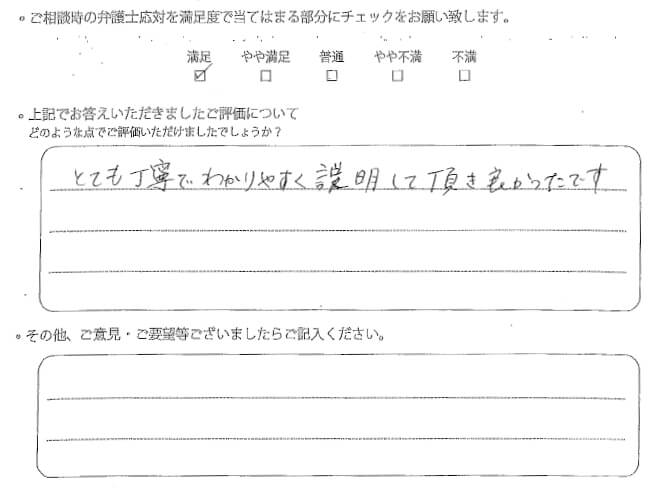 。ご相談時の弁護士応対を満足度で当てはまる部分にチェックをお願い致します。
満足 やや満足 普通 やや不満 不満
☑ ☐ ☐ ☐ ☐
。上記でお答えいただきましたご評価について
どのような点でご評価いただけましたでしょうか？
とても丁寧でわかりやすく説明して頂き良かったです
。その他、ご意見・ご要望等ございましたらご記入ください。